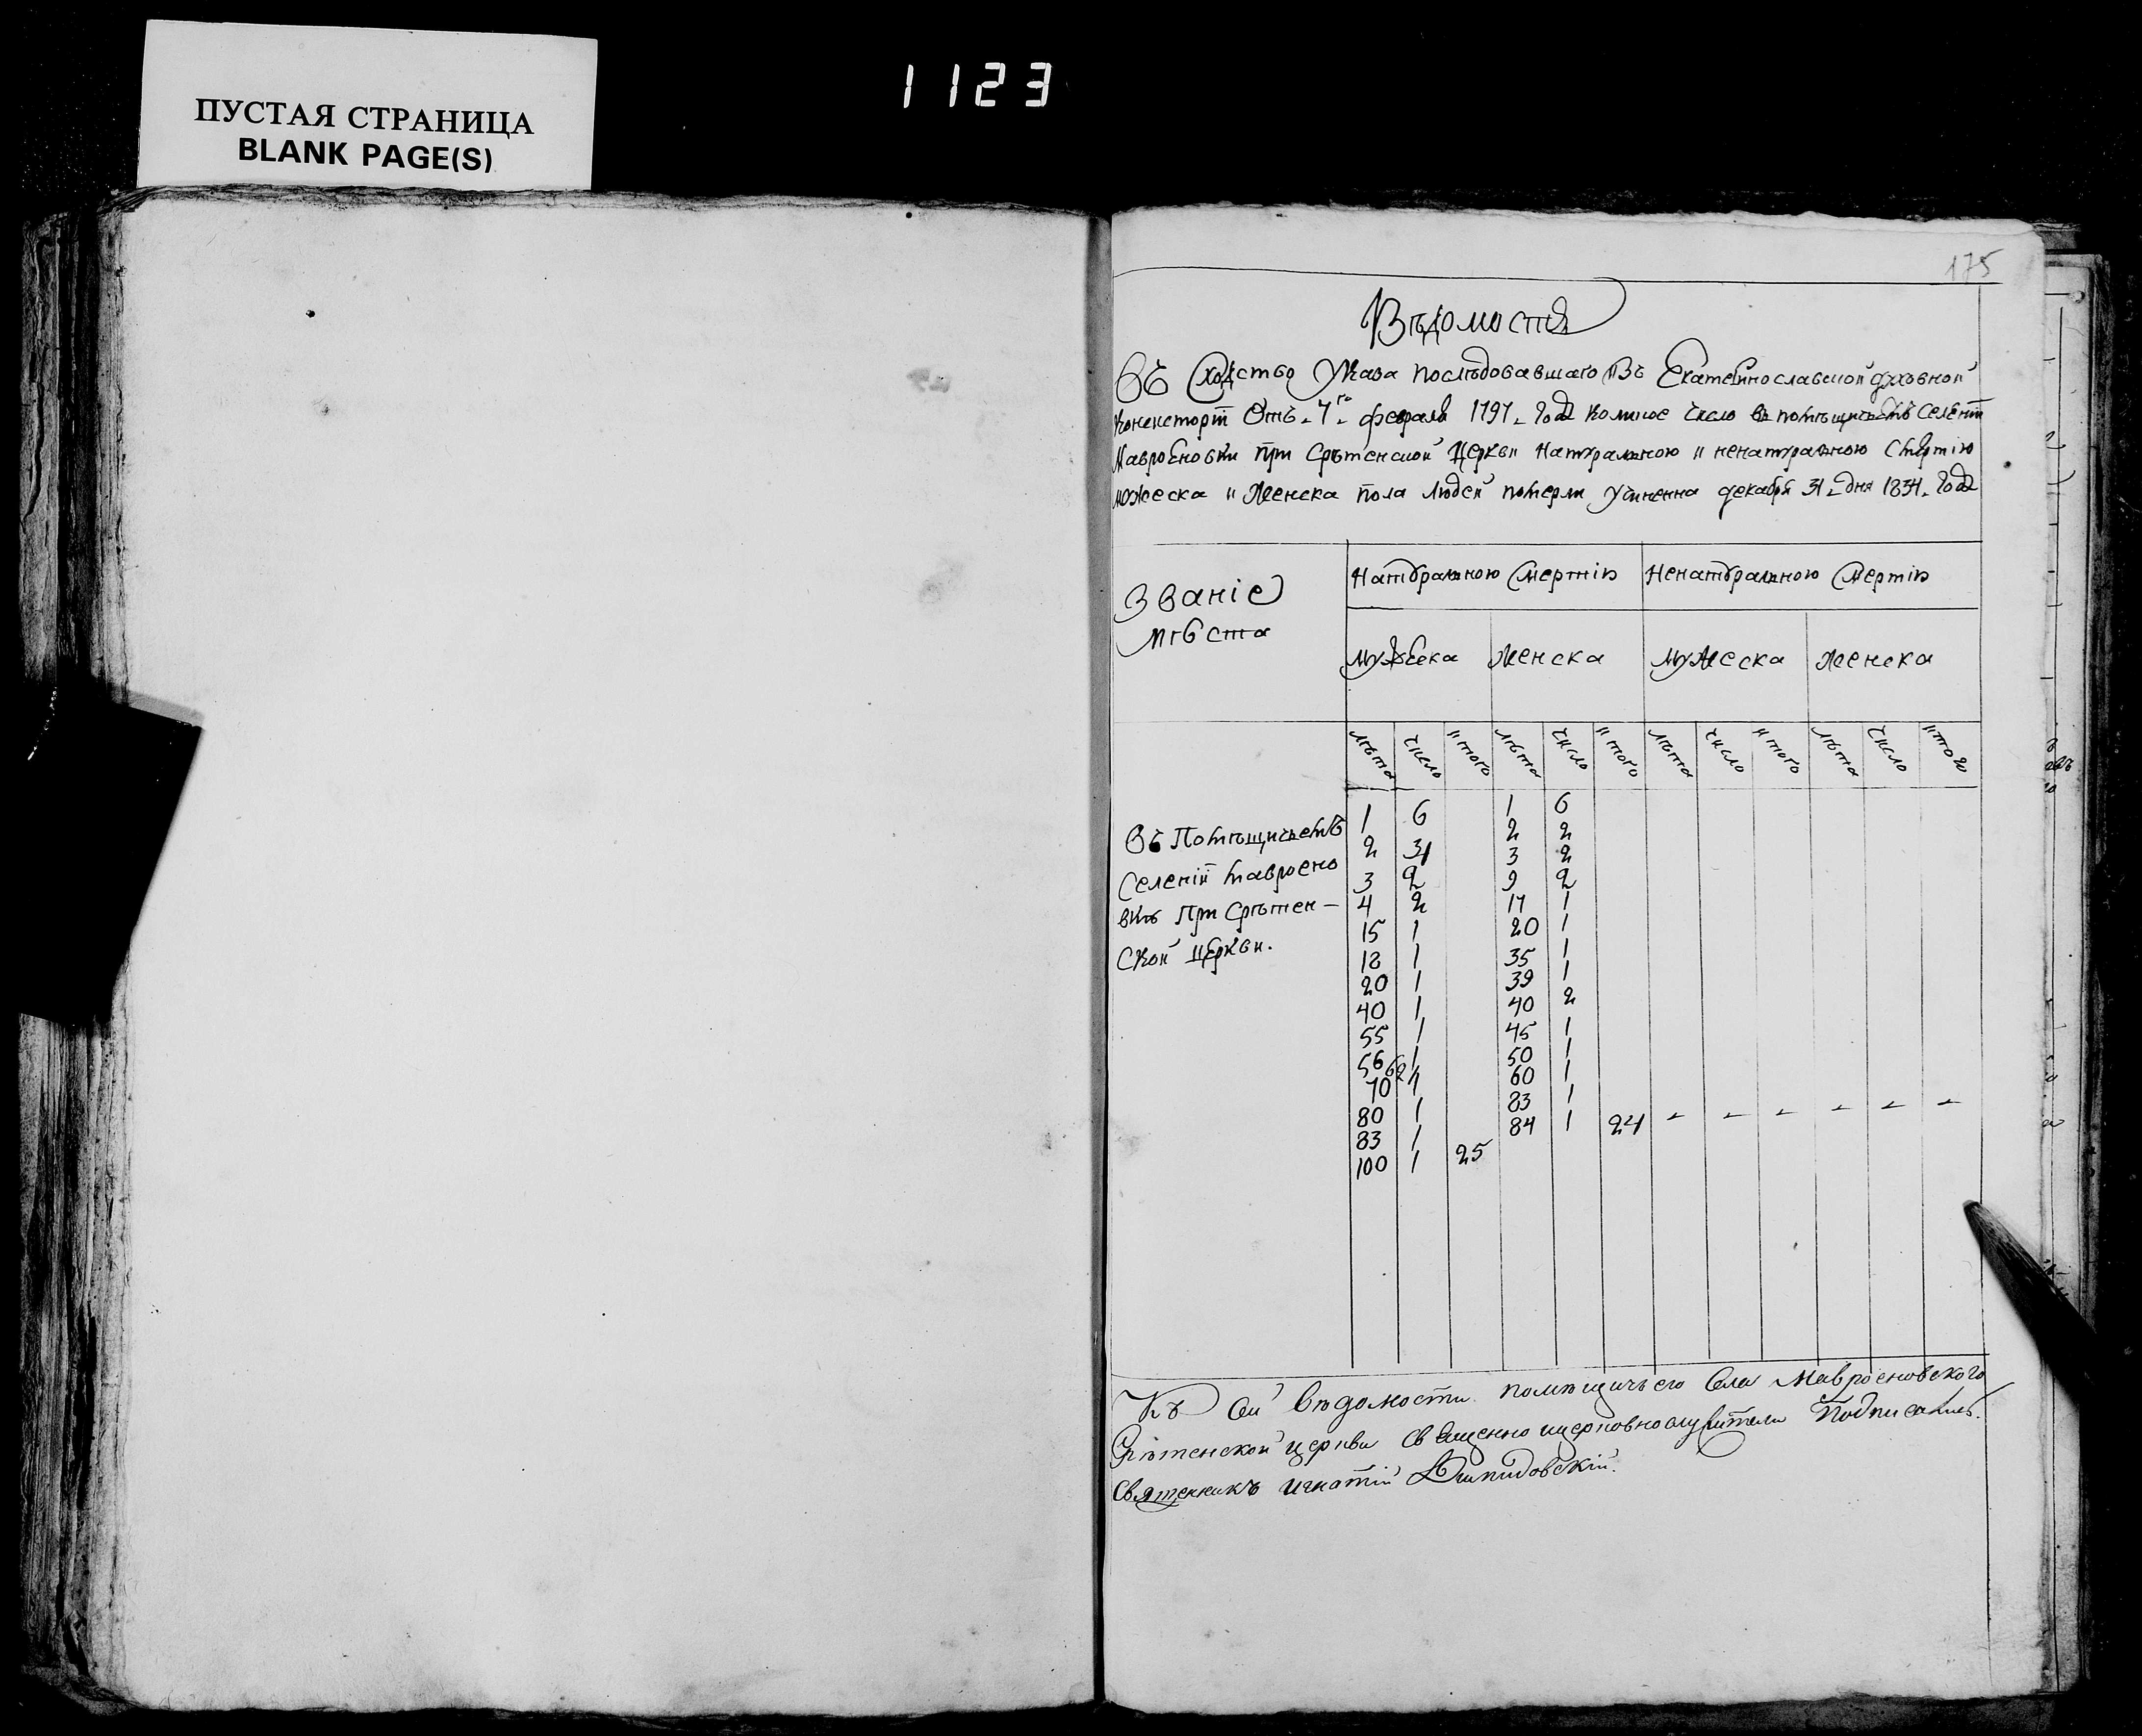 ПУСТАЯ СТРАНИЦА
BLANK PAGE(S)
1123
175
Вѣдомость
Въ Сходство Указа последовавшаго изъ Екатеринославской духовной
Консисторіи Отъ 4го февраля 1797 года коликое число въ помѣщичьемъ селеніи
Мавроеновки при Срѣтенской Церкви натуральною и ненатуральною Смертію
мужеска и Женска пола Людей померли учиненна декабря 31 дня 1834 года
Званіе мѣста
Натуральною Смертію Ненатуральною Смертію
мужеска Женска мужеска Женска
лѣта число итого лѣта число итого лѣта число итого лѣта число итого
Въ Помѣщичьемъ
Селеніи Мавроено
вкѣ При Срѣтен-
Ской Церкви.
1 6 1 6
2 2
2 31 3 2
3 2 9 2
4 2 17 1
15 1 20 1
18 1 35 1
20 1 39 1
40 1 40 2
55 1 45 1
56 1 50 1
62
70 1 60 1
80 1 83 1
83 1 84 1 24 - - - - - -
100 1 25
Къ Сей Вѣдомости помѣщичьего Села Мавроеновского
Срѣтенской церкви священно ицерковнослужители Подписались.
Священникъ Игнатій